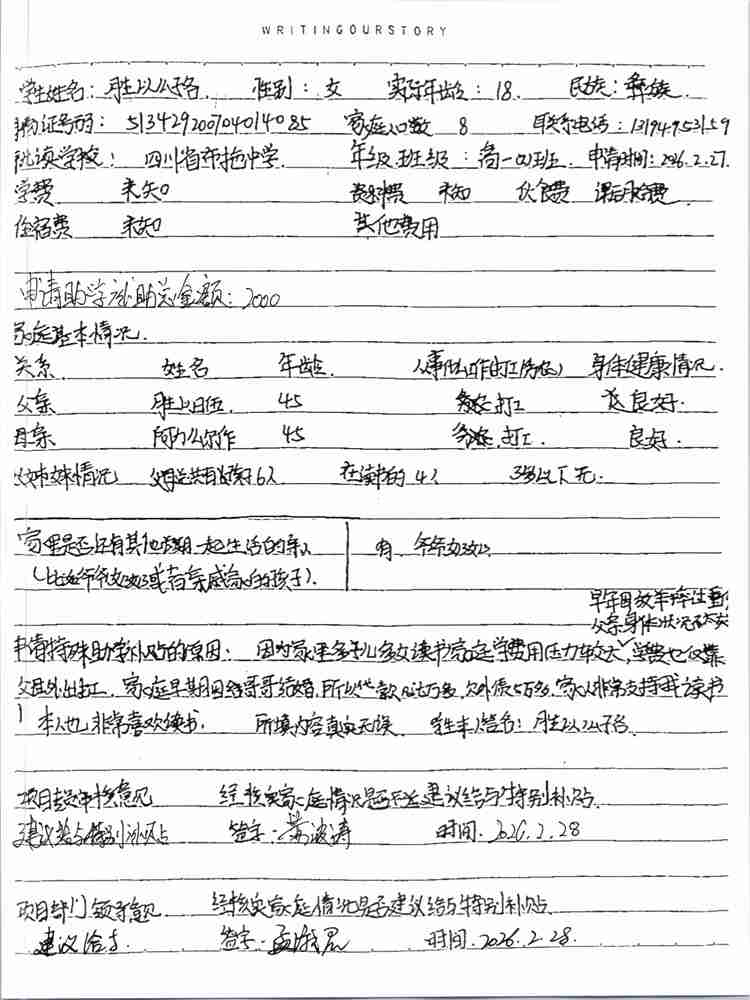 WRITINGOURSTORY
学生姓名：月生以么子各 性别：女 实际年龄：18. 民族：彝族
身份证号码：513429200704014085 家庭人口数 8 联系电话：13194953159
就读学校：四川省布拖中学. 年级.班级：高一(4)班. 申请时间：2026.2.27.
学费 未知 资料费 未知 伙食费 课后服务费
住宿费 未知 其他费用
申请助学补助总金额：2000
家庭基本情况.
关系 姓名 年龄 从事的工作(打工务农) 身体健康情况.
父亲 45 务农.打工 良好.
母亲 阿力么尔作 45 务农.打工. 良好.
姊妹情况 父母总共有孩子6人 在读书的4人 3岁以下无.
家里是否还有其他长期一起生活的亲人 有 爷爷奶奶
(比如爷爷奶奶或者亲戚家的孩子).
早年因放羊摔过重
父亲身体状况不太好
申请特殊助学补贴的原因：因为家里多子儿多女读书家庭学费用压力较大，学费也仅靠
父母外出打工，家庭早期因给哥哥结婚，所以贷款几万多，欠外债5万多，家人非常支持我读书
本人也非常喜欢读书. 所填内容真实无误. 学生本人签名：月生以么子各.
项目专员审核意见 经核实家庭情况是否建议给与特别补贴.
建议给与特别补贴 签字： 时间.2026.2.28
项目部门领导意见 经核实家庭情况是否建议给与特别补贴
建议给与. 签字： 时间.2026.2.28.